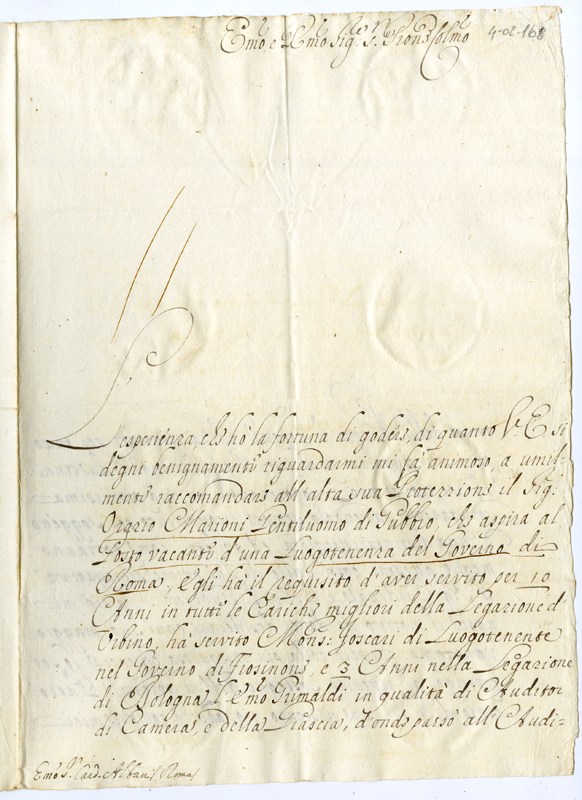 Em̃o e Rm̃o Sig.re S. Pron̄e Colm̃o
4-02-168
L'esperienza, che hò la fortuna di godere, di quanto V. E. si
degni benignamente riguardarmi mi fà animoso, a umil-
mente raccomandare all'alta sua Protezzione il Sig:
Orazio Marioni Gentiluomo di Gubbio, che aspira al
Posto vacante d'una Luogotenenza del Governo di
Roma, egli hà il requisito d'aver servito per 10
Anni in tutte le Cariche migliori della Legazione d'
Urbino, hà servito Mons: Foscari di Luogotenente
nel Governo di Frosinone, e 3 Anni nella Legazione
di Bologna l'Em̃o Grimaldi in qualità di Auditor
di Camera, e della Grascia, d'onde passò all'Audi-
Em̃o S.r Card. Albani / Roma /